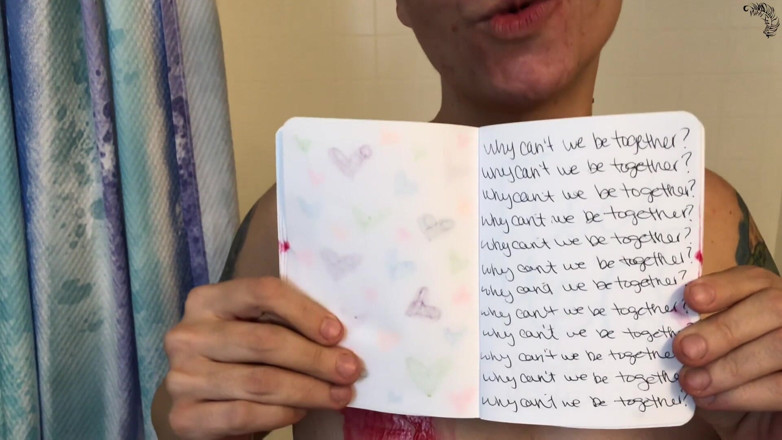 why can't we be together?
why can't we be together?
why can't we be together?
why can't we be together?
why can't we be together?
why can't we be together?
why can't we be together?
why can't we be together?
why can't we be together
why can't we be together
why can't we be together
why can't we be together?